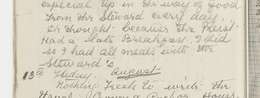 especial up in the way of food
from the Steward every day,
I thought because the Presst
Had a Made Breakfast, I did
as I had all meals with the
Steward's
13th Friday August
Nothing Fresh to write the